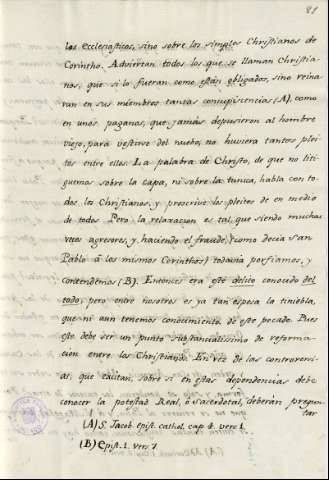 81
los Ecclesiasticos, sino sobre los simples Christianos de
Corintho. Adviertan todos los que se llaman Christia-
nos, que si lo fueran como están obligados, sino reina-
ran en sus miembros tantas concupiscencias (A), como
en unos paganos, que jamás depusieron al hombre
viejo, para vestirse del nuebo, no huviera tantos plei-
tos entre ellos. La palabra de Christo, de que no liti-
guemos sobre la capa, ni sobre la tunica, habla con to-
dos los Christianos, y prescrivio los pleitos de en medio
de todos. Pero la relaxacion es tal, que siendo muchas
veces agresores, y haciendo el fraude, (como decia San
Pablo à los mismos Corinthos) todavia porfiamos, y
contendemos (B). Entonces era este delito conocido del
todo, pero entre nosotros es ya tan espesa la tiniebla,
que ni aun tenemos conocimiento de este pecado. Pues
este debe ser un punto substancialissimo de reforma-
cion entre los Christianos. En vez de las controversi-
as, que exitan, sobre si en estas dependencias debe
conocer la potestad Real, ò Sacerdotal, deberan pregun-
tar
(A) S. Jacob. epist. cathol. cap. 4. vers. 1.
(B) Epist. 1. vers. 7